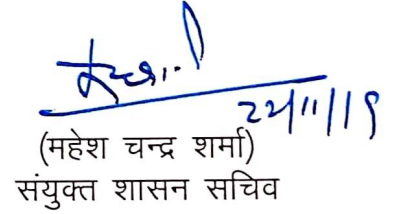 22/11/19
(महेश चन्द्र शर्मा)
संयुक्त शासन सचिव